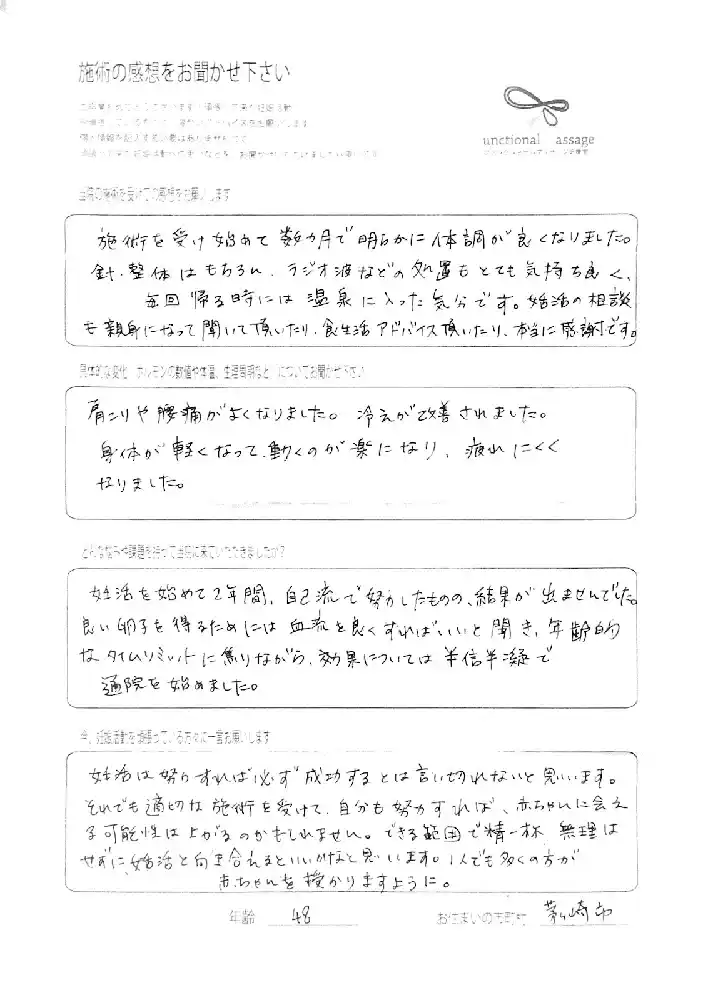 施術の感想をお聞かせ下さい
unctional assage
当院の施術を受けての感想をお願いします
施術を受け始めて数カ月で明らかに体調が良くなりました。
針、整体はもちろん、ラジオ波などの処置もとても気持ち良く、
毎回帰る時には温泉に入った気分です。妊活の相談
も親身になって聞いて頂いたり、食生活アドバイス頂いたり、本当に感謝です。
具体的な変化 ホルモンの数値や体温、生理周期など についてお聞かせ下さい
肩こりや腰痛がよくなりました。冷えが改善されました。
身体が軽くなって、動くのが楽になり、疲れにくく
なりました。
どんな悩みや課題を持って当院に来ていただきましたか?
妊活を始めて2年間、自己流で努力したものの、結果が出ませんでした。
良い卵子を得るためには血流を良くすればいいと聞き、年齢的
なタイムリミットに焦りながら、効果については半信半凝で
通院を始めました。
今、妊娠活動を頑張っている方々に一言お願いします
妊活は努力すれば必ず成功するとは言い切れないと思います。
それでも適切な施術を受けて、自分も努力すれば、赤ちゃんに会え
る可能性は上がるのかもしれません。できる範囲で精一杯、無理は
せずに、妊活と向き合えるといいかなと思います。1人でも多くの方が
赤ちゃんを授かりますように。
年齢 48 お住まいの市町村 茅ヶ崎市